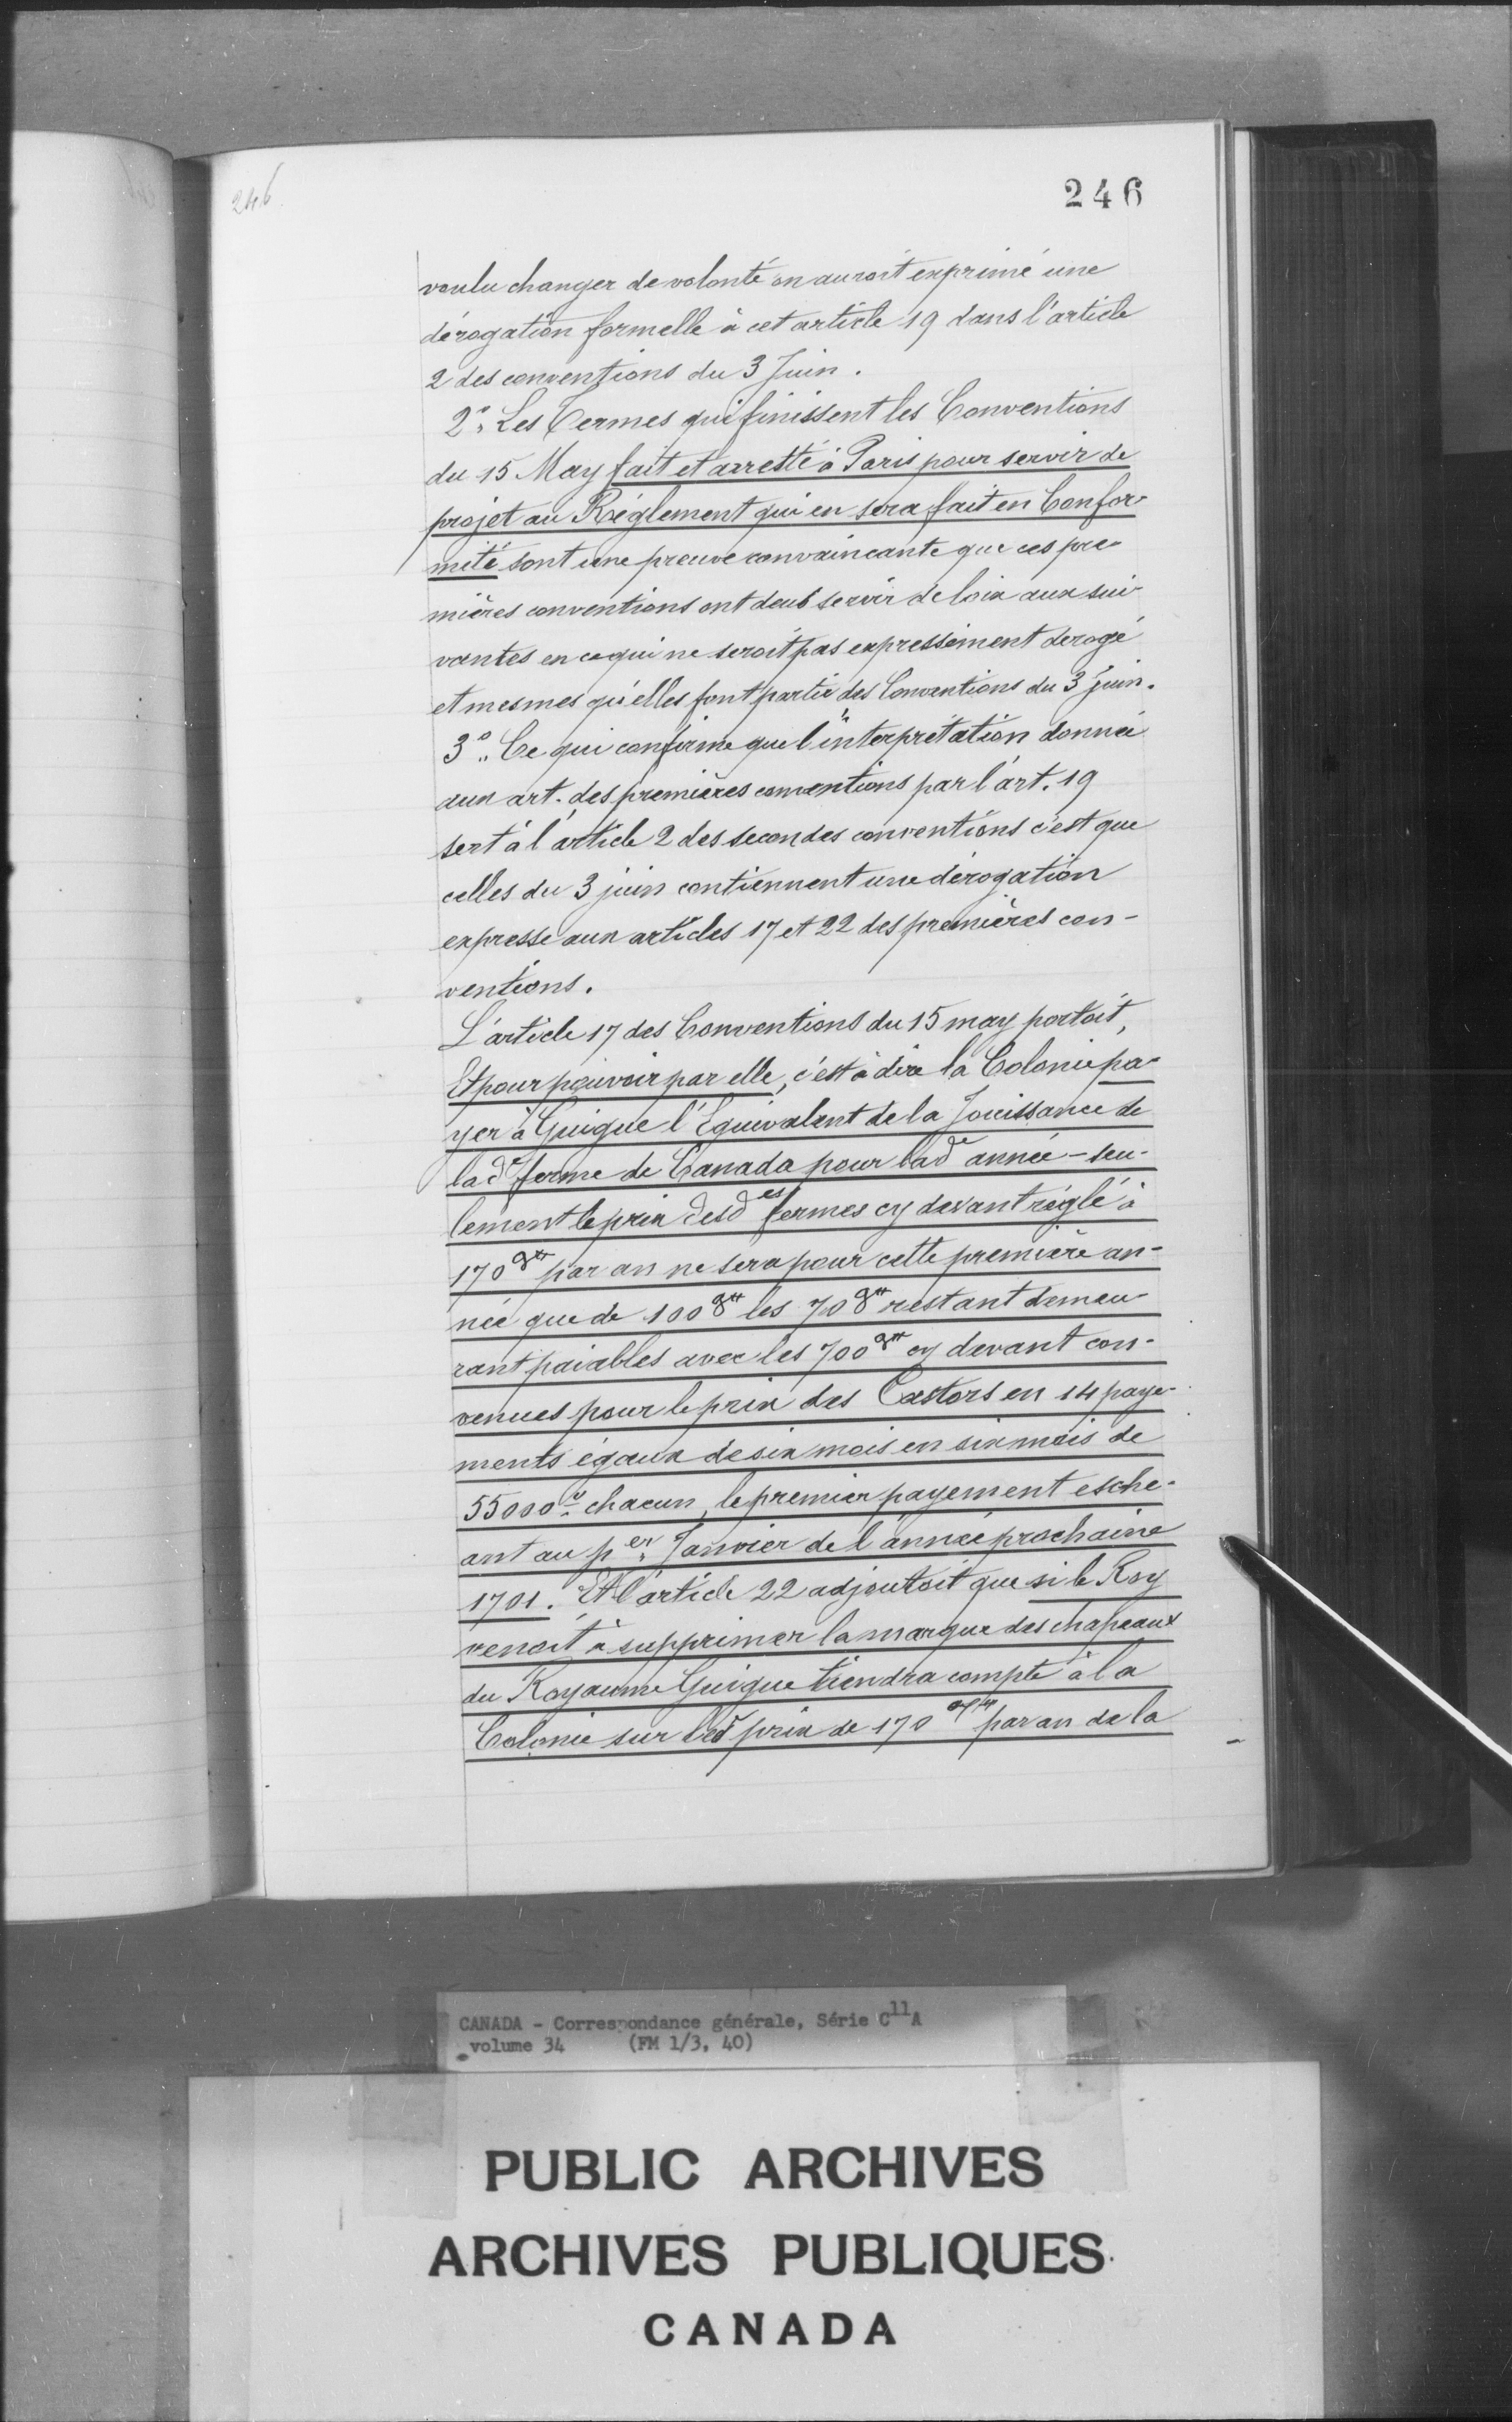 246.
246
voulu changer de volonté on auroit exprimé une
dérogation formelle à cet article 19 dans l'article
2 des conventions du 3 Juin.
2°. Les Termes qui finissent les Conventions
du 15 May fait et arresté à Paris pour servir de
projet au Réglement qui en sera fait en Confor-
mité sont une preuve convaincante que ces pre-
mières conventions ont deub servir de loix aux sui-
vantes en ce qui ne seroit pas expressément derogé
et mesmes qu'elles font partie des Conventions du 3 juin.
3°. Ce qui confirme que l'interprétation donnée
aux art. des premières conventions par l'art. 19
sert à l'article 2 des secondes conventions c'est que
celles du 3 juin contiennent une dérogation
expresse aux articles 17 et 22 des premières con-
ventions.
L'article 17 des Conventions du 15 may portoit,
Et pour pouvoir par elle, c'est à dire la Colonie pa-
yer à Guigue l'Equivalent de la Jouissance de
lad e ferme de Canada pour lad e année - seu-
lement le prix desd es fermes cy devant réglé à
170 par an ne sera pour cette première an-
née que de 100 les 70 restant demeu-
rant paiables avec les 700 cy devant con-
venues pour le prix des Castors en 14 paye-
ments égaux de six mois en six mois de
55000 chacun, le premier payement esche-
ant au p er. Janvier de l'année prochaine
1701. Et l'article 22 adjoutoit que si le Roy
venoit à supprimer la marque des chapeaux
du Royaume Guigue tiendra compte à la
Colonie sur led prix de 170 par an de la
CANADA - Correspondance générale, Série C11A
volume 34 (FM 1/3, 40)
PUBLIC ARCHIVES
ARCHIVES PUBLIQUES
CANADA